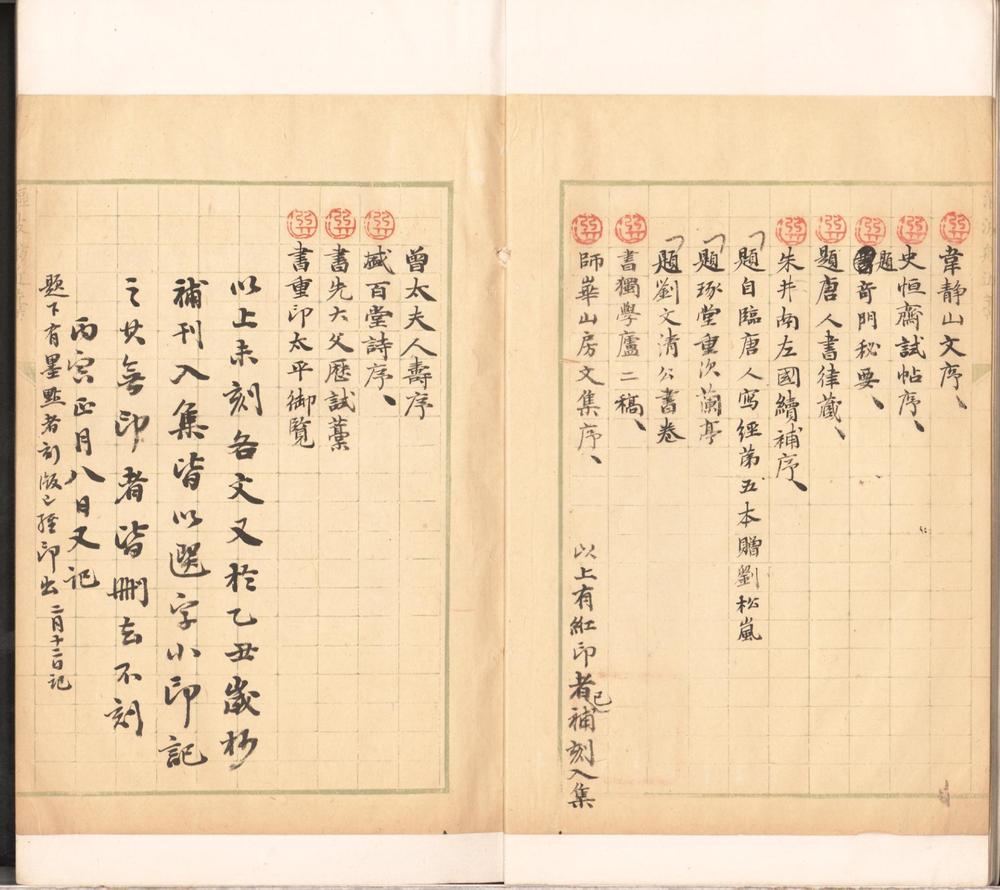 韋静山文序、
史恒齋試帖序、
題奇門秘要、
題唐人書律藏、
朱井南左國續補序、
題自臨唐人寫經苐五本贈劉松嵐
題琢堂重次蘭亭
題劉文清公書卷
書獨學廬二稿、
師崋山房文集序、
以上有紅印者已補刻入集
曾太夫人壽序
臧百堂詩序、
書先大父歴試藁
書重印太平御覧
以上未刻各文又於乙丑嵗杪
補刊入集皆以選字小印記
之其無印者皆刪去不刻
丙寅正月八日又記
題下有墨㸃者刻版已經印出二月十二日記